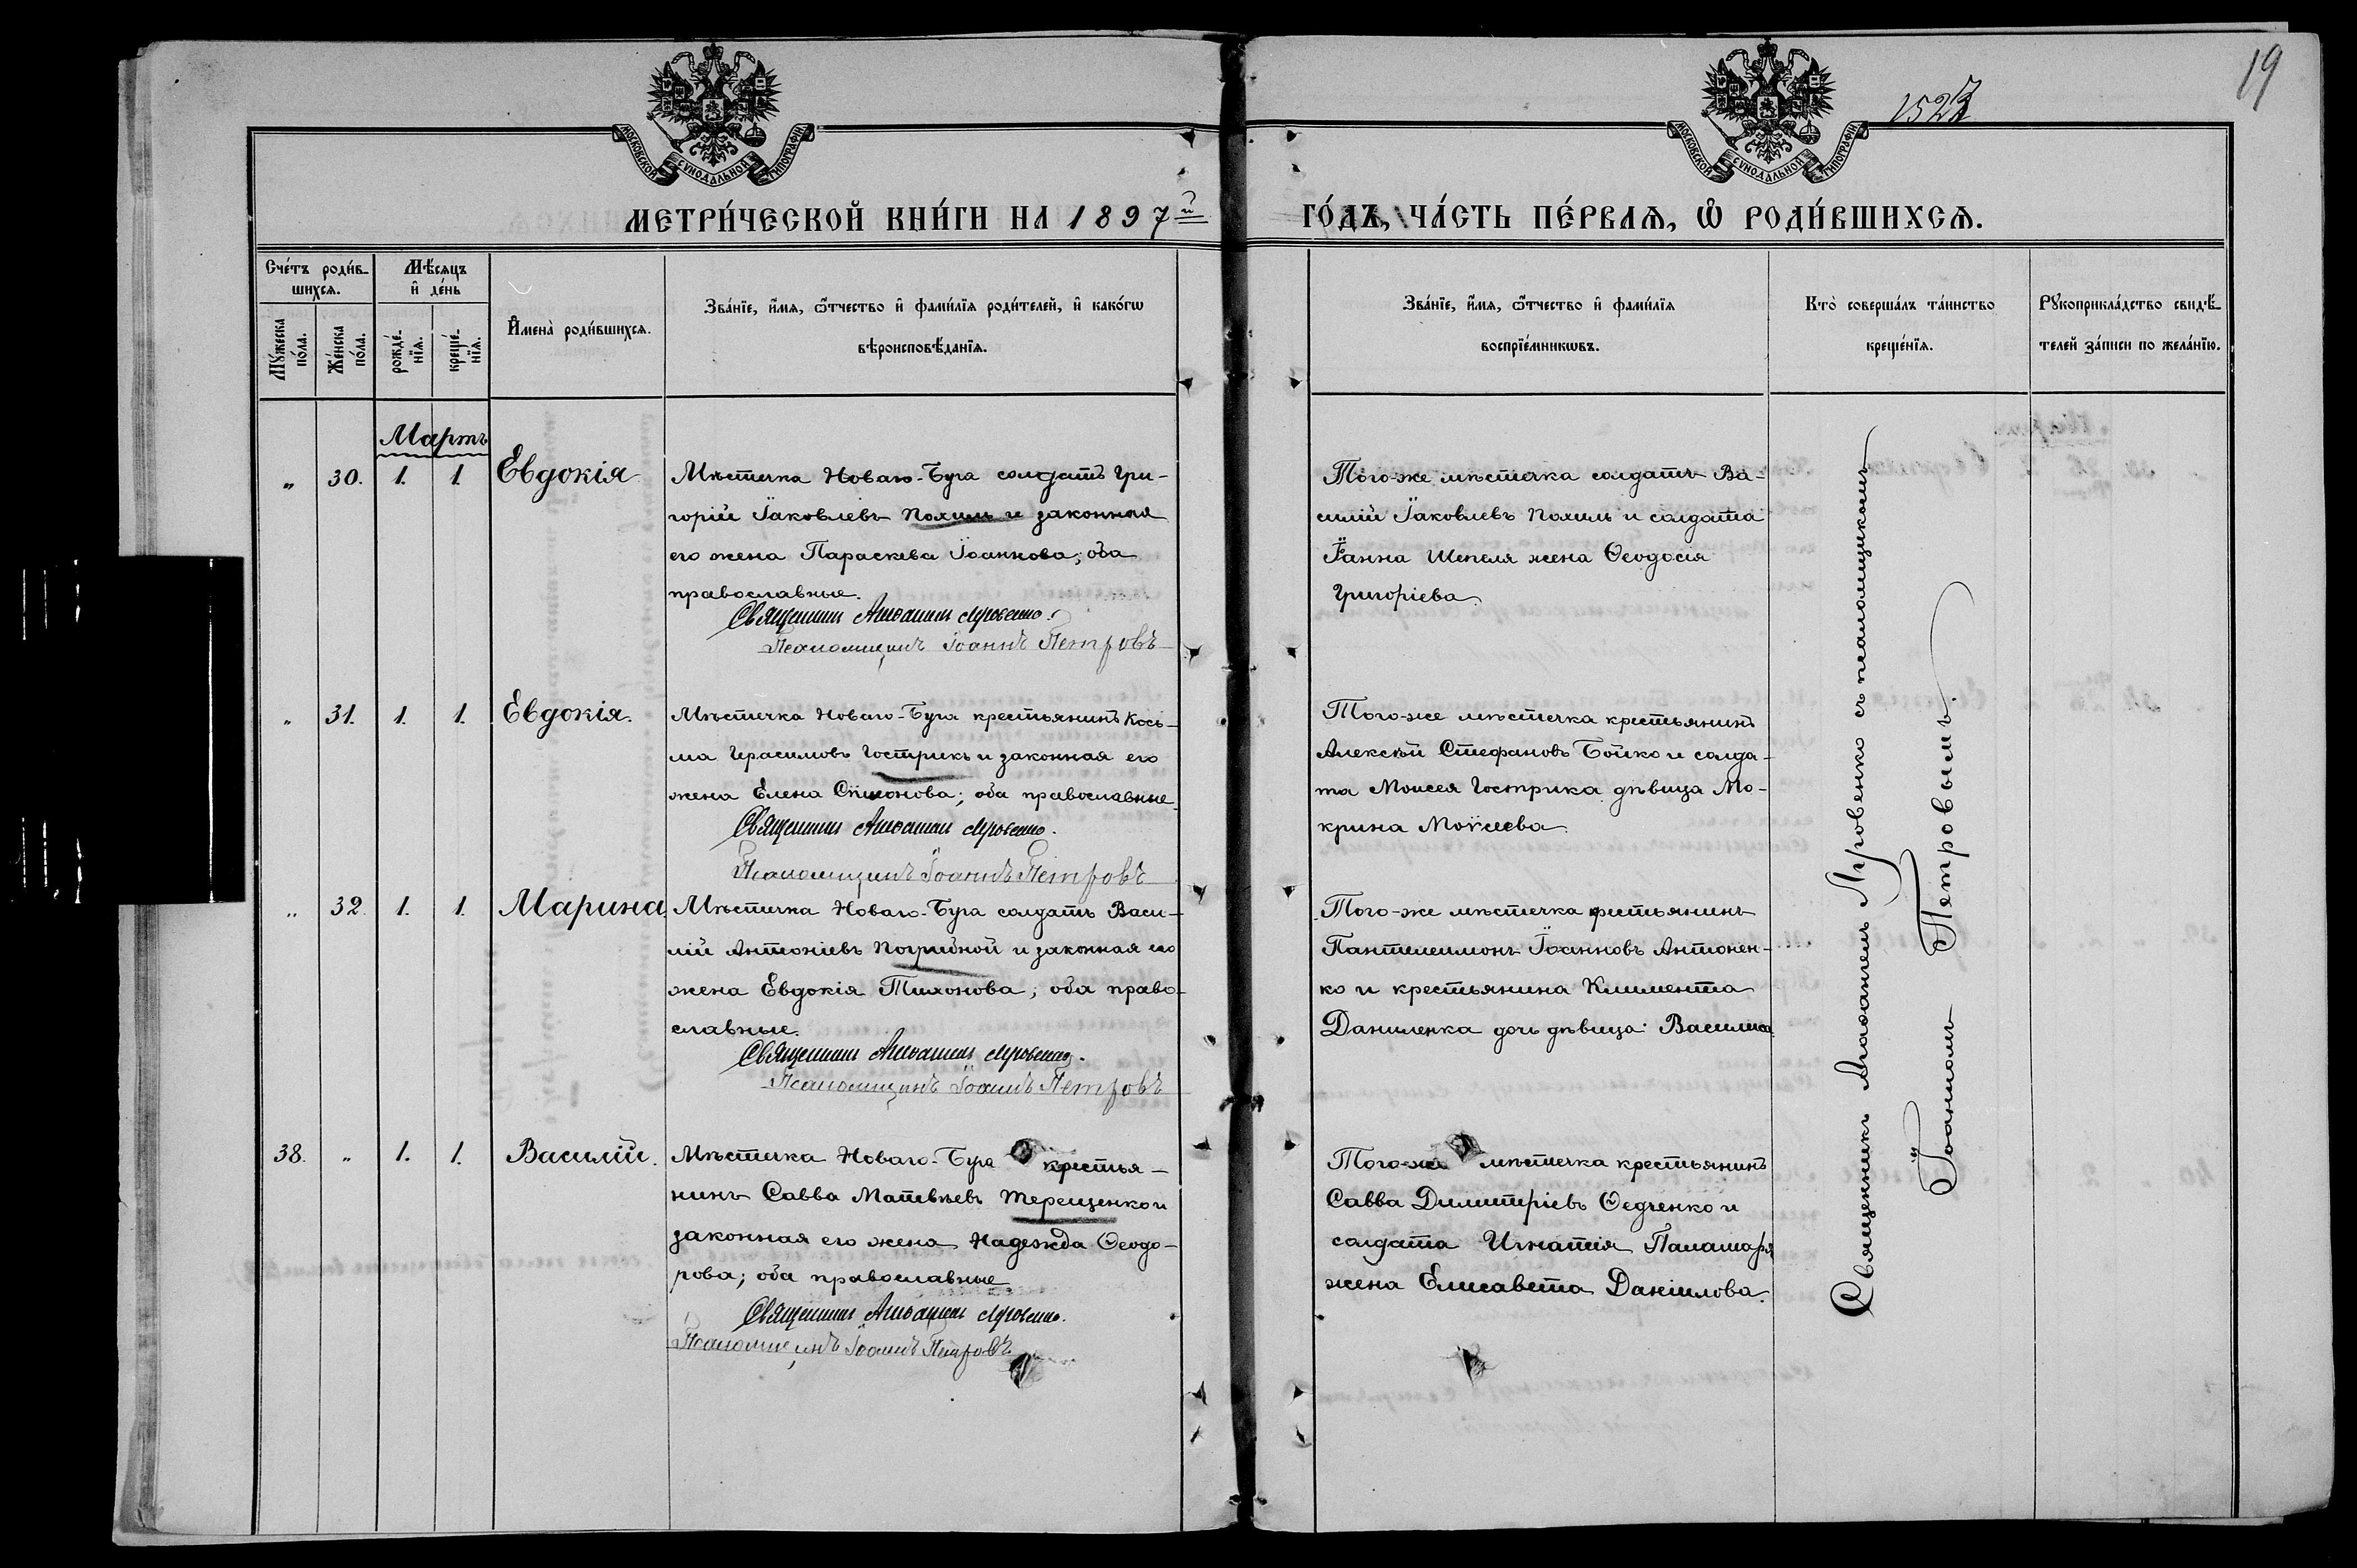 19
1527
МОСКОВСКОЙ СУНОДАЛЬНОЙ ТИПОГРАФІИ
МОСКОВСКОЙ СУНОДАЛЬНОЙ ТИПОГРАФІИ
МЕТРИ́ЧЕСКОЙ КНИ́ГИ НА 1897й ГО́ДЪ, ЧА́СТЬ ПЕ́РВАѦ, Ѡ҆ РОДИ́ВШИХСѦ.
Сче́тъ роди́в-
шихсѧ.
Мꙋ́жеска
по́ла.
Же́нска
по́ла.
Мѣ́сѧцъ
и҆ де́нь
рожде́-
нїѧ.
креще́-
нїѧ.
И҆мена̀ роди́вшихсѧ.
Зва́нїе, и҆́мѧ, ѻ҆́тчество и҆ фами́лїѧ роди́телей, и҆ како́гѡ
вѣроисповѣ́данїѧ.
Зва́нїе, и҆́мѧ, ѻ҆́тчество и҆ фами́лїѧ
воспрїе́мникѡвъ.
Кто̀ соверша́лъ та́инство
креще́нїѧ.
Рꙋкоприкла́дство свидѣ́-
телей за́писи по жела́нїю.
Мартъ
„ 30. 1. 1. Евдокія
Мѣстечка Новаго-Буга солдатъ Гри-
горій Іаковлевъ Похиль и законная
его жена Параскева Іоаннова; оба
православные.
Священникъ Афанасій Яровенко.
Псаломщикъ Іоаннъ Петровъ
Того-же мѣстечка солдатъ Ва-
силій Іаковлевъ Похиль и солдата
Іоанна Шепеля жена Ѳеодосія
Григоріева.
„ 31. 1. 1. Евдокія.
Мѣстечка Новаго-Буга крестьянинъ Кось-
ма Герасимовъ Гострикъ и законная его
жена Елена Симонова; оба православные.
Священникъ Афанасій Яровенко.
Псаломщикъ Іоаннъ Петровъ
Того-же мѣстечка крестьянинъ
Алексѣй Стефановъ Бойко и солда-
та Моисея Гострика дѣвица Мо-
крина Моѵсеева.
„ 32. 1. 1. Марина
Мѣстечка Новаго-Буга солдатъ Васи-
лій Антоніевъ Погрибной и законная его
жена Евдокія Тихонова; оба право-
славные.
Священникъ Афанасій Яровенко.
Псаломщикъ Іоаннъ Петровъ
Того-же мѣстечка крестьянинъ
Пантелеимонъ Іоанновъ Антонен-
ко и крестьянина Климента
Даниленка дочь дѣвица: Василиса
38. „ 1. 1. Василій.
Мѣстечка Новаго-Буга крестья-
нинъ Савва Матвѣевъ Терещенко и
законная его жена Надежда Ѳеодо-
рова; оба православные
Священникъ Афанасій Яровенко.
Псаломщикъ Іоаннъ Петровъ
Того-же мѣстечка крестьянинъ
Савва Димитріевъ Ѳедченко и
солдата Игнатія Паламаря
жена Елисавета Даніилова.
Священникъ Яровенко съ псаломщикомъ
Іоанномъ Петровымъ.